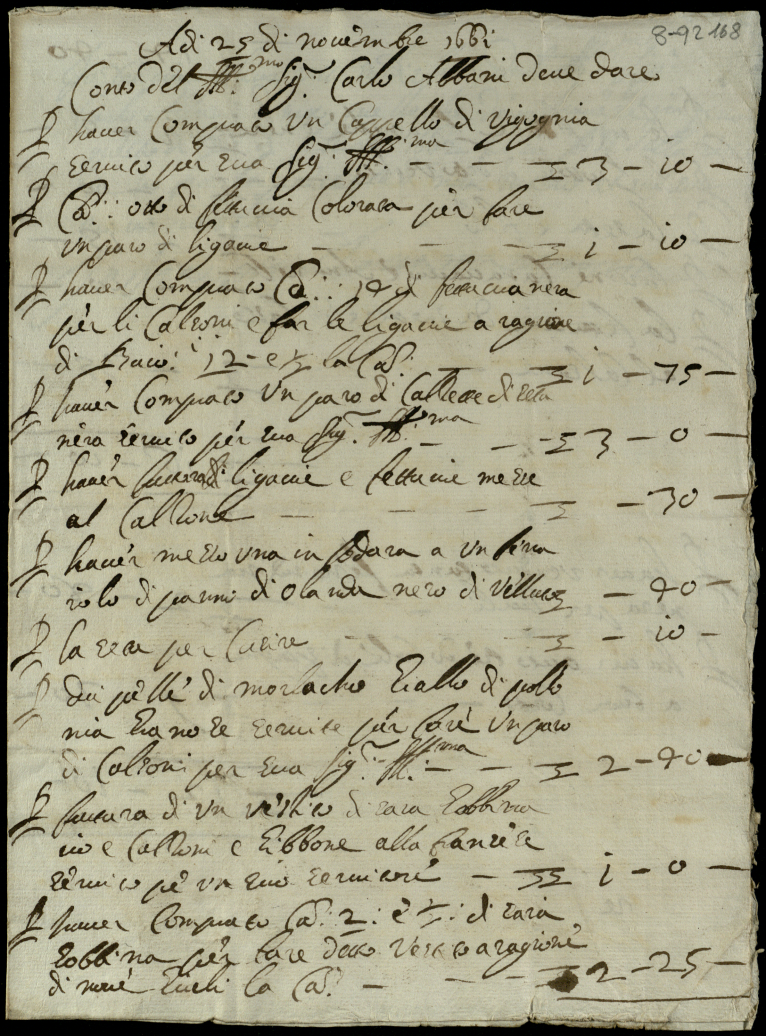 8-92 168
Adi 25 di novembre 1661
Conto del Ill.mo Sig.r Carlo Albani deve dare
P haver Comprato un Cappello di vigognia
servito per sua Sig.r Ill.ma — — ∑ 3 – 10 —
P Ca: otto di fettuccia Colorata per fare
un paro di ligacie — — — ∑ 1 – 10 —
P haver Comprato Ca: 14 di fettuccia nera
per li Calzoni e far le ligacie a ragione
di Baio: 12 e ½ la Ca: — ∑ 1 – 75 —
P haver Comprato un paro di Calzette di seta
nera servito per sua Sig.r Ill.ma — — ∑ 3 – 0 —
P haver ligacie e fettucie messe
al Calzone — — — ∑ – 30 —
P haver messo una in fodara a un fera
iolo di panno di Olanda nero di velluto ∑ – 40 —
P la seta per Cusire ∑ – 10 –
P dui pelle di giallo di pollo
nia servite per fare un paro
di Calzoni per sua Sig.r Ill.ma — — ∑ 2 – 40 —
P fattura di un vestito di saia
no e Calzoni e Gibbone alla franzese
servito pe un suo servitore — ∑ 1 – 0 —
P haver Comprato Ca: 2: e ½: di saia
per fare detto vestito a ragione
di nove Giuli la Ca: — — ∑ 2 – 25 —